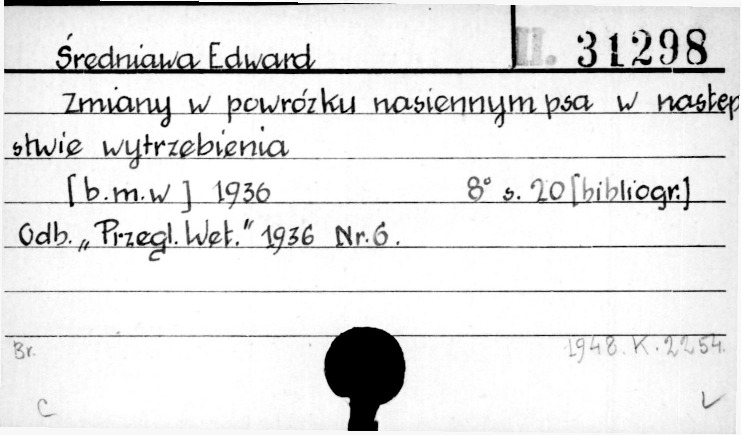 Średniawa Edward II. 31298
Zmiany w powrózku nasiennym psa w następ
stwie wytrzebienia
[b.m.w] 1936 8° s. 20 [bibliogr.]
Odb. „Przegl. Wet." 1936 Nr. 6.
Br. 1948. K. 2254.
C